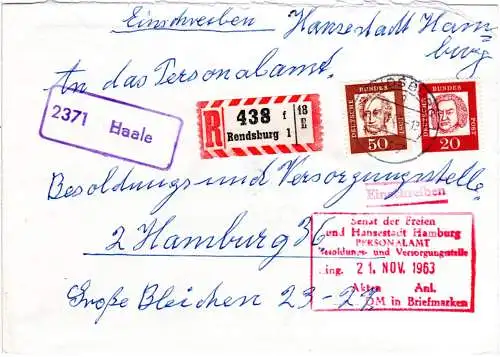 Einschreiben Hansestadt Ham-
burg
An das Personalamt
2371 Haale
R 438 f 18
Rendsburg 1 E
DEUTSCHE BUNDES POST
50
DEUTSCHE BUNDES POST
20
Einschreiben
Besoldungs und Versorgungsstelle
2 Hamburg 36
Große Bleichen 23-27
Senat der Freien
und Hansestadt Hamburg
PERSONALAMT
Besoldungs- und Versorgungsstelle
Eing. 21. NOV. 1963
Akten Anl.
DM in Briefmarken